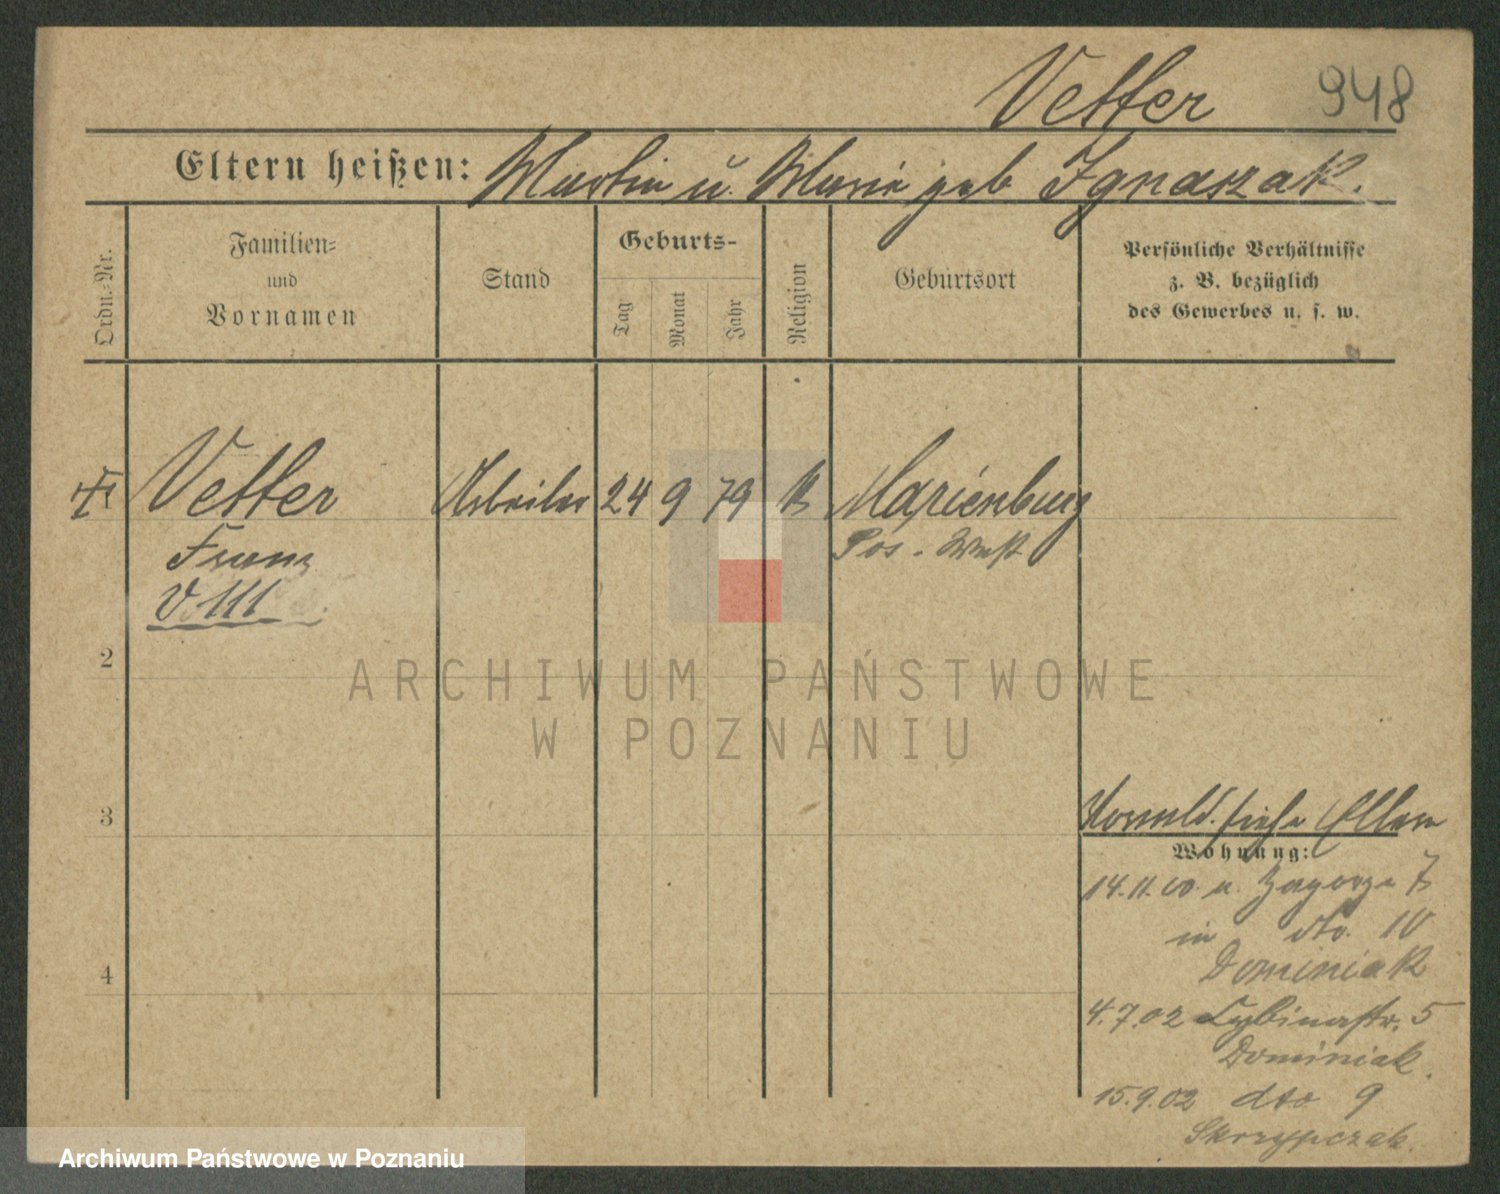 Vetter 948
Eltern heißen: Martin u. Marie geb Ignaszak.
Ordn.-Nr.
Familien-
und
Vornamen
Stand
Geburts-
Tag
Monat
Jahr
Religion
Geburtsort
Persönliche Verhältnisse
z. B. bezüglich
des Gewerbes u. s. w.
Vetter Arbeiter 24 9 79 k Marienburg
Franz Pos. West
V III
2
3
4
siehe Eltern
Wohnung:
14.11.00 u. Zagorze 7
in dto. 10
Dominiak
4.7.02 Cybinastr. 5
Dominiak.
15.9.02 dto 9
Skrzypczak.
ARCHIWUM PAŃSTWOWE
W POZNANIU
Archiwum Państwowe w Poznaniu